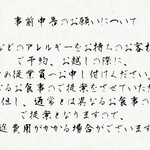 事前申告のお願いについて
などのアレルギーをお持ちのお客様
ご予約、お越しの際に、
め従業員へお申し付けください。
るお食事のご提供をさせていただ
但し、通常とは異なるお食事の
ご提供となりますので、
途費用がかかる場合がございます